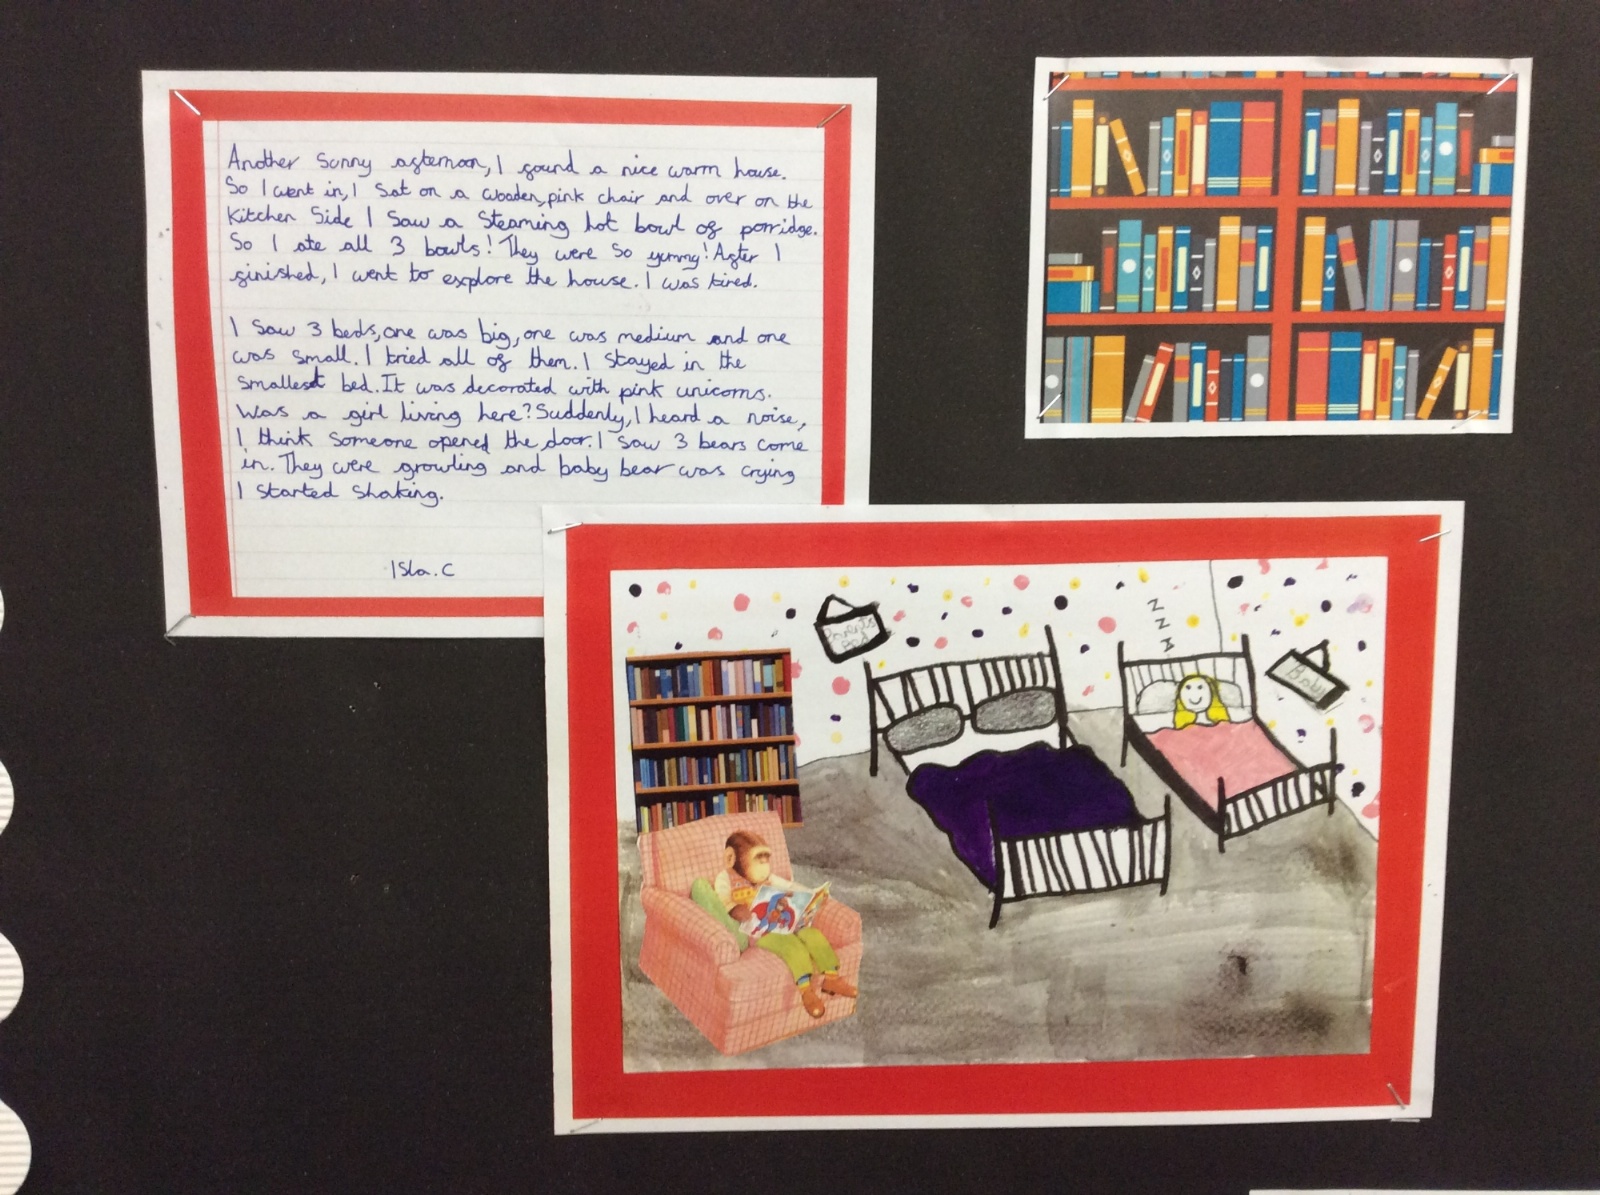 Another sunny afternoon, I found a nice warm house.
So I went in, I sat on a wooden, pink chair and over on the
kitchen side I saw a steaming hot bowl of porridge.
So I ate all 3 bowls! They were so yummy! After I
finished, I went to explore the house. I was tired.
I saw 3 beds, one was big, one was medium and one
was small. I tried all of them. I stayed in the
smallest bed. It was decorated with pink unicorns.
Was a girl living here? Suddenly, I heard a noise,
I think someone opened the door. I saw 3 bears come
in. They were growling and baby bear was crying
I started shaking.
Isla.C
Z
Z
Z
Parents
Bed
Baby